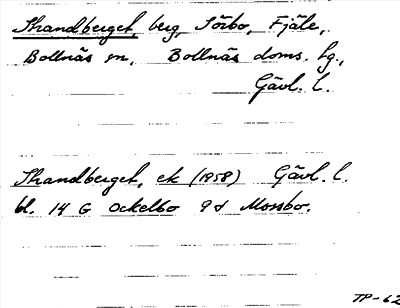 Strandberget, berg, Sörbo, Fjäle,
Bollnäs sn, Bollnäs doms. hg.,
Gävl. l.
Strandberget, ek (1958) Gävl. l.
bl. 14 G Ockelbo 9d Mossbo.
TP-62